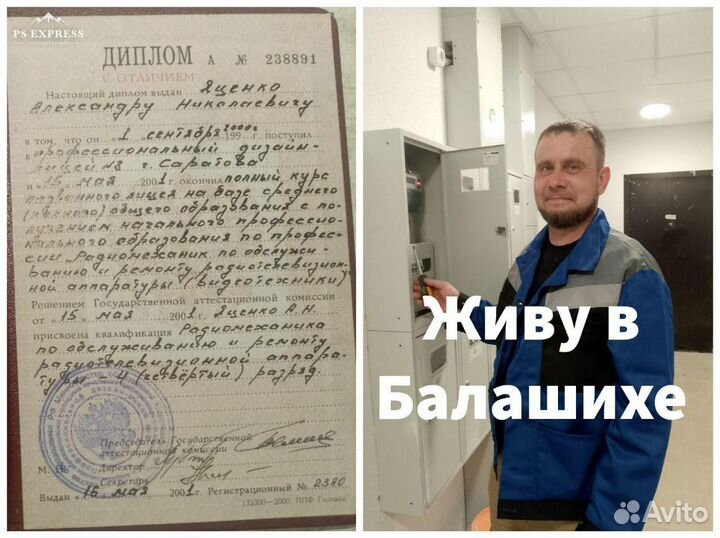 PS EXPRESS
ДИПЛОМ А № 238891
С ОТЛИЧИЕМ
Настоящий диплом выдан Яценко
Александру Николаевичу
в том, что он „1 сентября 2000г 199 г. поступил
в профессиональный дизайн-
лицей №8 г. Саратова
и „15 мая 2001 г. окончил полный курс
названного лицея на базе среднего
(полного) общего образования с по-
лучением начального профессио-
нального образования по профес-
сии „Радиомеханик по обслужи-
ванию и ремонту радиотелевизион-
ной аппаратуры (видеотехники)"
Решением Государственной аттестационной комиссии
от „15 мая 2001 г. Яценко А.Н.
присвоена квалификация Радиомеханика
по обслуживанию и ремонту
радиотелевизионной аппара-
туры 4 (четвёртый) разряд.
Председатель Государственной
аттестационной комиссии
М. П. Директор
Секретарь
Выдан „16 мая 2001 г. Регистрационный № 2380
Живу в
Балашихе
Avito